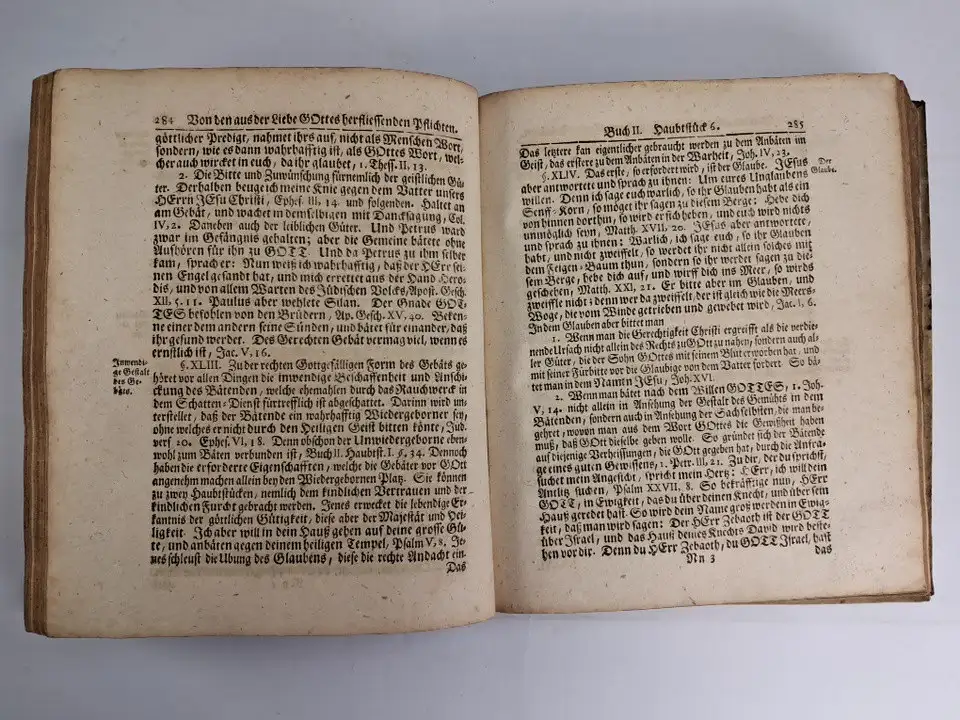 284 Von den aus der Liebe GOttes herfliessenden Pflichten.
göttlicher Predigt, nahmet ihrs auf, nicht als Menschen Wort,
sondern, wie es dann wahrhafftig ist, als GOttes Wort, wel-
cher auch wircket in euch, da ihr glaubet, 1. Thess. II, 13.
2. Die Bitte und Zuwünschung fürnemlich der geistlichen Gü-
ter. Derhalben beuge ich meine Knie gegen dem Vatter unsers
HErrn JEsu Christi, Ephes. III, 14. und folgenden. Haltet an
am Gebät, und wachet in demselbigen mit Dancksagung, Col.
IV, 2. Daneben auch der leiblichen Güter. Und Petrus ward
zwar im Gefängnis gehalten; aber die Gemeine bätete ohne
Aufhören für ihn zu GOTT. Und da Petrus zu ihm selber
kam, sprach er: Nun weiß ich wahrhafftig, daß der HErr sei-
nen Engel gesandt hat, und mich errettet aus der Hand Hero-
dis, und von allem Warten des Jüdischen Volcks, Apost. Gesch.
XII, 5. 11. Paulus aber wehlete Silan. Der Gnade GOT-
TES befohlen von den Brüdern, Ap. Gesch. XV, 40. Beken-
ne einer dem andern seine Sünden, und bätet für einander, daß
ihr gesund werdet. Des Gerechten Gebät vermag viel, wenn es
ernstlich ist, Jac. V, 16.
Inwendi-
ge Gestalt
des Ge-
bäts.
§. XLIII. Zu der rechten Gottgefälligen Form des Gebäts ge-
höret vor allen Dingen die innwendige Beschaffenheit und Anschi-
ckung des Bätenden, welche ehemahlen durch das Rauchwerck in
dem Schatten-Dienst fürtrefflich ist abgeschattet. Darinn wird un-
terstellet, daß der Bätende ein wahrhafftig Wiedergeborner sey,
ohne welches er nicht durch den Heiligen Geist bitten könte, Jud.
vers 20. Ephes. VI, 18. Denn obschon der Unwiedergeborne eben-
wohl zum Bäten verbunden ist, Buch II. Haubtst. I. §. 34. Dennoch
haben die erforderte Eigenschafften, welche die Gebäter vor GOtt
angenehm machen allein bey den Wiedergebornen Platz. Sie können
zu zwey Haubtstücken, nemlich dem kindlichen Vertrauen und der
kindlichen Furcht gebracht werden. Jenes erwecket die lebendige Er-
kantnis der göttlichen Gütigkeit, diese aber der Majestät und Hei-
ligkeit. Ich aber will in dein Hauß gehen auf deine grosse Gü-
te, und anbäten gegen deinem heiligen Tempel, Psalm V, 8. Je-
nes schleust die Übung des Glaubens, diese die rechte Andacht ein.
Das
Buch II. Haubtstück 6. 285
Das letztere kan eigentlicher gebraucht werden zu dem Anbäten im
Geist, das erstere zu dem Anbäten in der Warheit, Joh. IV, 23.
§. XLIV. Das erste, so erfordert wird, ist der Glaube. JEsus
Der
Glaube.
aber antwortete und sprach zu ihnen: Um eures Unglaubens
willen. Denn ich sage euch warlich, so ihr Glauben habt als ein
Senff-Korn, so möget ihr sagen zu diesem Berge: Hebe dich
von hinnen dorthin, so wird er sich heben, und euch wird nichts
unmöglich seyn, Matth. XVII, 20. JEsus aber antwortete,
und sprach zu ihnen: Warlich, ich sage euch, so ihr Glauben
habt, und nicht zweiffelt, so werdet ihr nicht allein solches mit
dem Feigen-Baum thun, sondern so ihr werdet sagen zu die-
sem Berge, hebe dich auf, und wirff dich ins Meer, so wirds
geschehen, Matth. XXI, 21. Er bitte aber im Glauben, und
zweiffle nicht; denn wer da zweiffelt, der ist gleich wie die Meers-
Woge, die vom Winde getrieben und gewebet wird, Jac. I, 6.
In dem Glauben aber bittet man
1. Wenn man die Gerechtigkeit Christi ergreifft als die verdie-
nende Ursach nicht allein des Rechts zu GOtt zu nahen, sondern auch al-
ler Güter, die der Sohn GOttes mit seinem Blut erworben hat, und
mit seiner Fürbitte vor die Glaubige von dem Vatter fordert. So bä-
tet man in dem Namen JEsu, Joh. XVI.
2. Wenn man bätet nach dem Willen GOTTES, 1. Joh.
V, 14. nicht allein in Ansehung der Gestalt des Gemüths in dem
Bätenden, sondern auch in Ansehung der Sach selbsten, die man be-
gehret, wovon man aus dem Wort GOttes die Gewißheit haben
muß, daß GOtt dieselbe geben wolle. So gründet sich der Bätende
auf diejenige Verheissungen, die GOtt gegeben hat, durch die Anfra-
ge eines guten Gewissens, 1. Petr. III, 21. Zu dir, der du sprichst,
suchet mein Angesicht, spricht mein Hertz: HErr, ich will dein
Antlitz suchen, Psalm XXVII, 8. So bekräfftige nun, HErr
GOTT, in Ewigkeit, das du über deinen Knecht, und über sein
Hauß geredet hast. So wird dein Name groß werden in Ewig-
keit, daß man wird sagen: Der HErr Zebaoth ist der GOTT
über Israel, und das Hauß deines Knechts David wird beste-
hen vor dir. Denn du HErr Zebaoth, du GOTT Israel, hast
Nn 3 das